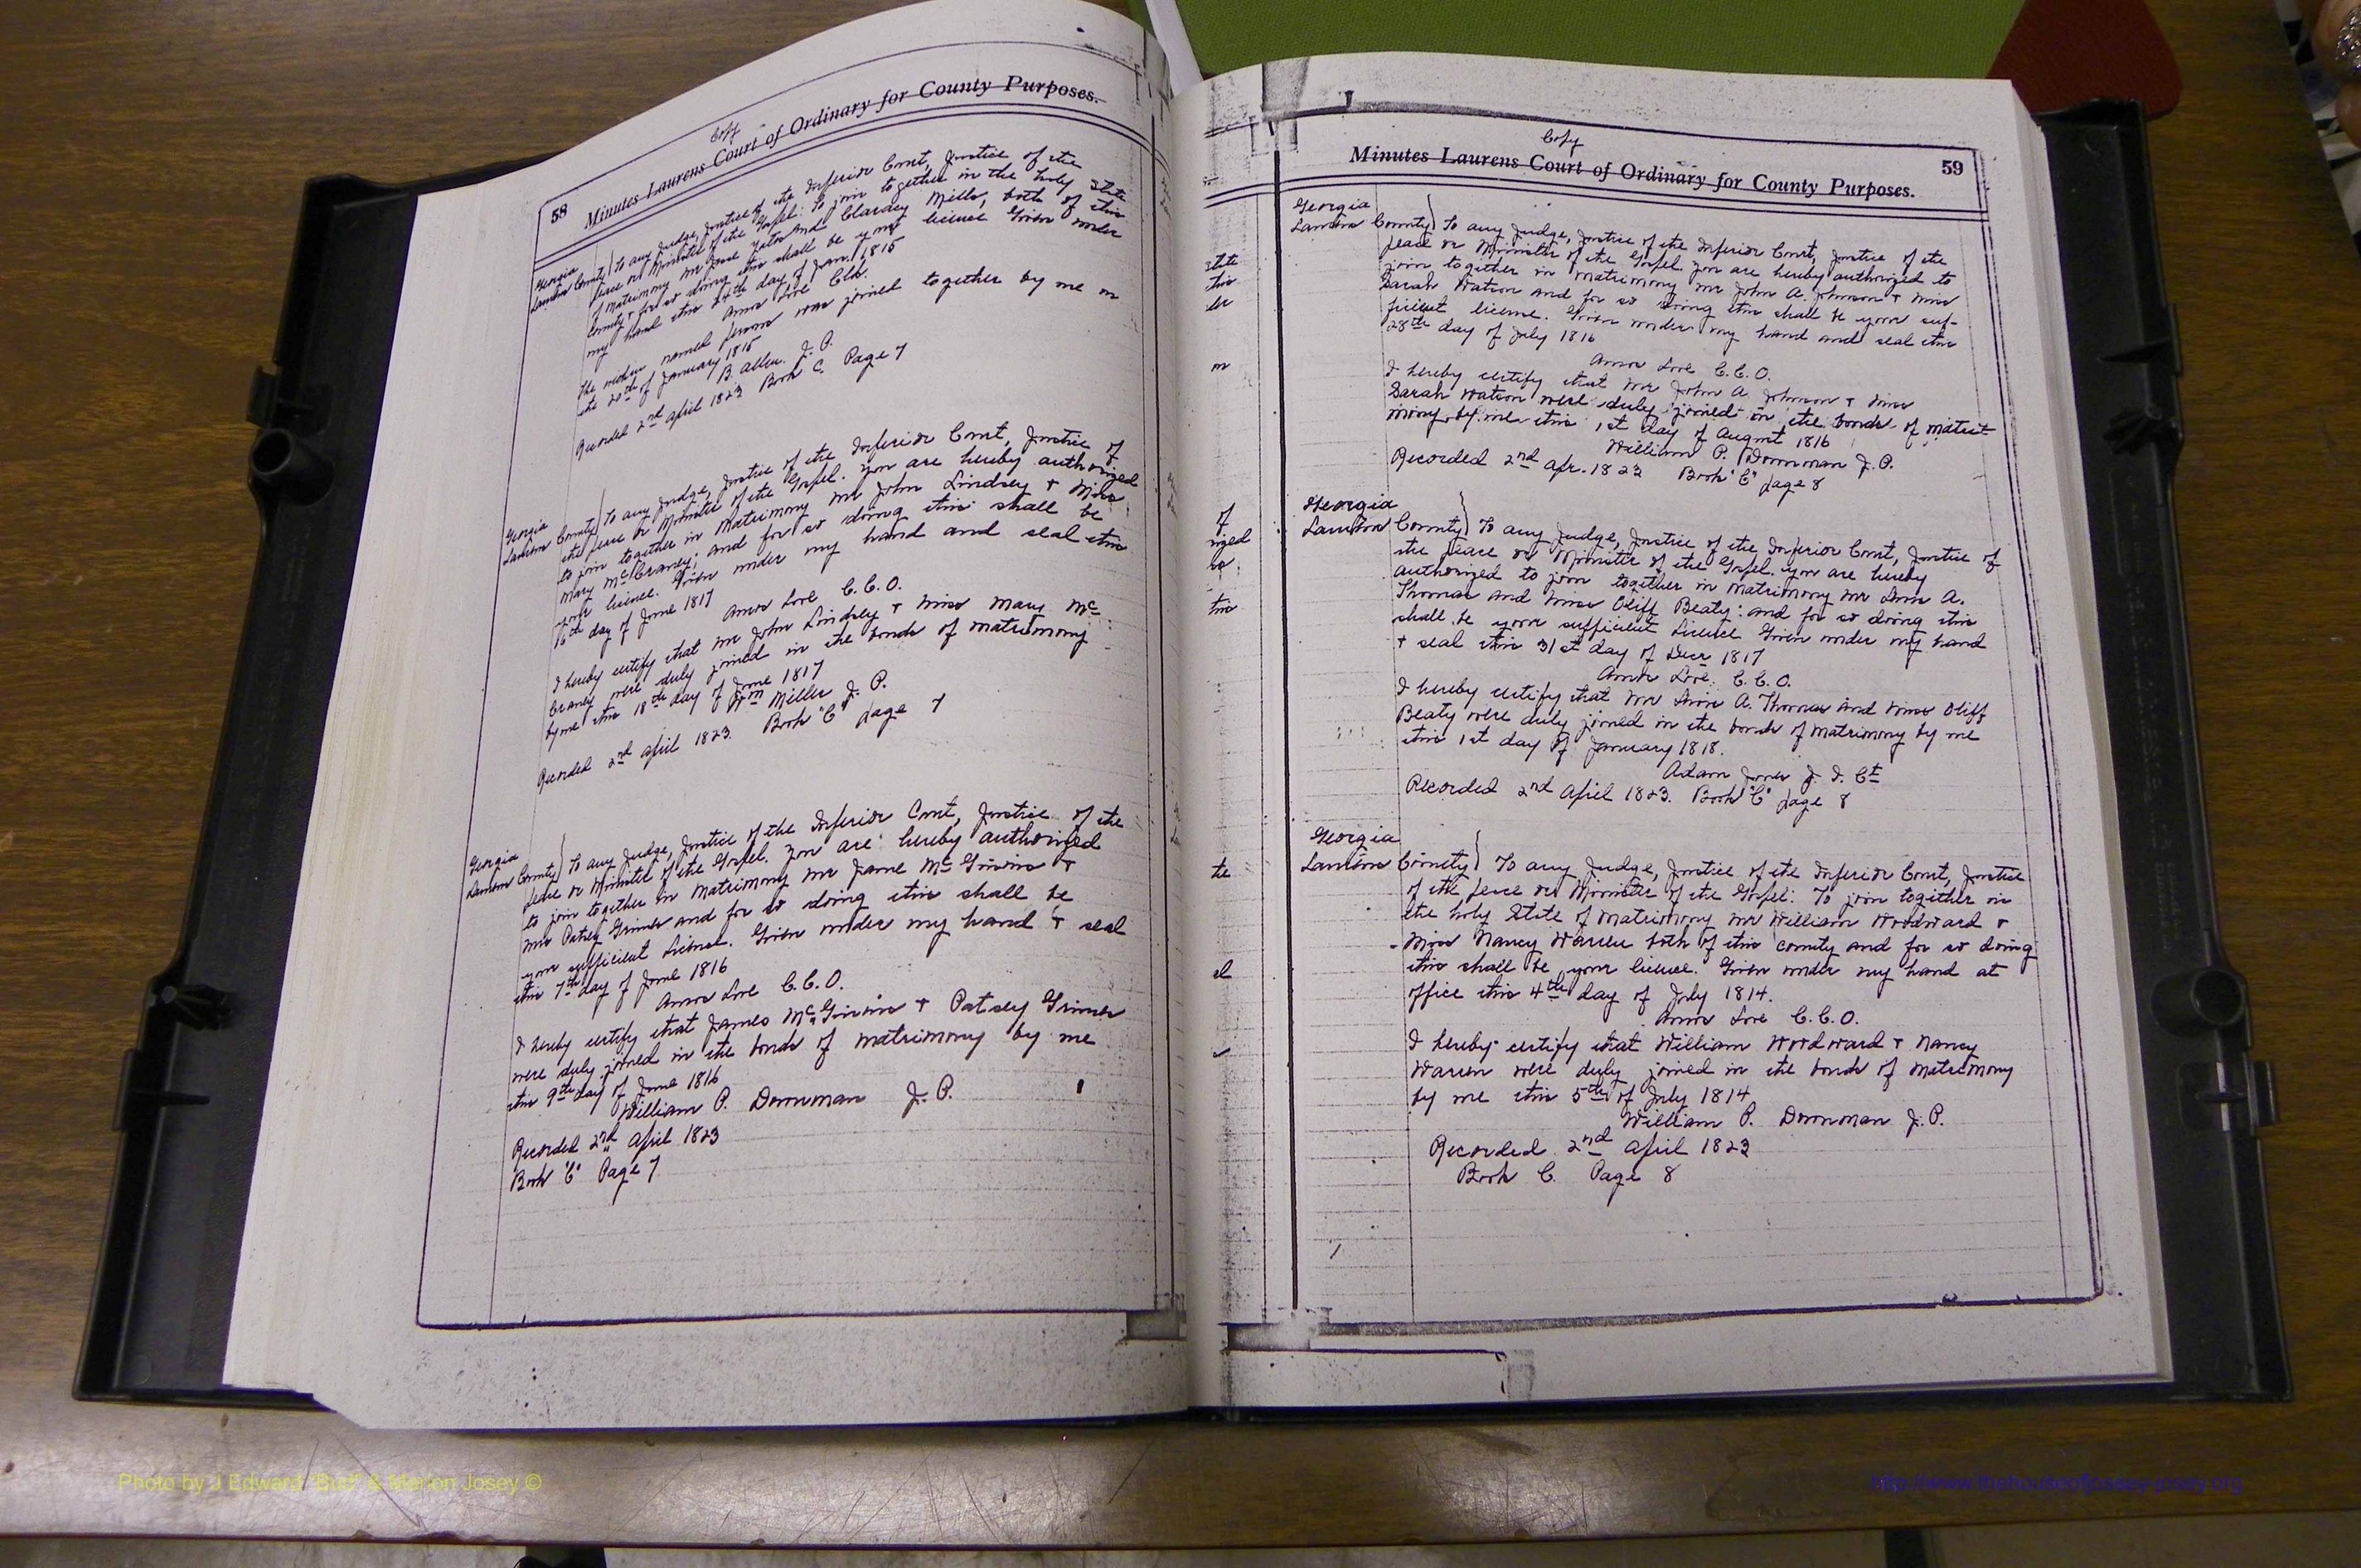 Copy
58 Minutes Laurens Court of Ordinary for County Purposes.
Georgia
Laurens County) To any Judge, Justice of the Inferior Court, Justice of the
peace or Minister of the Gospel: To join together in the holy state
of Matrimony Mr Yates and Mills, both of this
county & for so doing this shall be your licence Given under
my hand this 24th day of Jan. 1815
Amos Love Clk.
The within named persons was joined together by me on
the 20th of January 1815
B. Allen. J. P.
Recorded 2nd April 1823 Book C. Page 7
Georgia
Laurens County) To any Judge, Justice of the Inferior Court, Justice of
the peace or Minister of the Gospel. You are hereby authorized
to join together in Matrimony Mr John Lindsey & Miss
Mary McCraney; and for so doing this shall be
your licence. Given under my hand and seal this
16th day of June 1817
Amos Love C. C. O.
I hereby certify that Mr John Lindsey & Miss Mary Mc
Craney were duly joined in the bonds of matrimony
by me this 18th day of June 1817
Wm Miller J. P.
Recorded 2nd April 1823. Book "C" page 7
Georgia
Laurens County) To any Judge, Justice of the Inferior Court, Justice of the
peace or Minister of the Gospel. You are hereby authorized
to join together in Matrimony Mr &
Patsey and for so doing this shall be
your sufficient License. Given under my hand & seal
this 7th day of June 1816
Amos Love C. C. O.
I hereby certify that James & Patsey
were duly joined in the bonds of matrimony by me
this 9th day of June 1816
William P. Dornman J. P.
Recorded 2nd April 1823
Book "C" Page 7
Copy
Minutes Laurens Court of Ordinary for County Purposes. 59
Georgia
Laurens County) To any Judge, Justice of the Inferior Court, Justice of the
peace or Minister of the Gospel you are hereby authorized to
join together in matrimony Mr John A. Johnson & Miss
Sarah Watson and for so doing this shall be your suf-
ficient license. Given under my hand and seal this
28th day of July 1816
Amos Love C. C. O.
I hereby certify that Mr John A. Johnson & Miss
Sarah Watson were duly joined in the bonds of matri-
mony by me this 1st day of August 1816
William P. Dornman J. P.
Recorded 2nd Apr. 1823 Book "C" page 8
Georgia
Laurens County) To any Judge, Justice of the Inferior Court, Justice of
the peace or Minister of the Gospel. you are hereby
authorized to join together in matrimony Mr A.
Thomas and Miss Oliff Beaty: and for so doing this
shall be your sufficient Licence Given under my hand
& seal this 31st day of Decr 1817
Amos Love. C. C. O.
I hereby certify that Mr A. Thomas and Miss Oliff
Beaty were duly joined in the bonds of matrimony by me
this 1st day of January 1818.
Adam Jones J. I. Ct
Recorded 2nd April 1823. Book "C" page 8
Georgia
Laurens County) To any Judge, Justice of the Inferior Court, Justice
of the peace or Minister of the Gospel: To join together in
the holy State of Matrimony Mr William Woodward &
Miss Nancy Warren both of this county and for so doing
this shall be your licence. Given under my hand at
office this 4th day of July 1814.
Amos Love C. C. O.
I hereby certify that William Woodward & Nancy
Warren were duly joined in the bonds of matrimony
by me this 5th of July 1814
William P. Dornman J. P.
Recorded 2nd April 1823
Book C. Page 8
Photo by J Edward "Bud" & Marion Josey ©
http://www.thehouseofjossey-josey.org